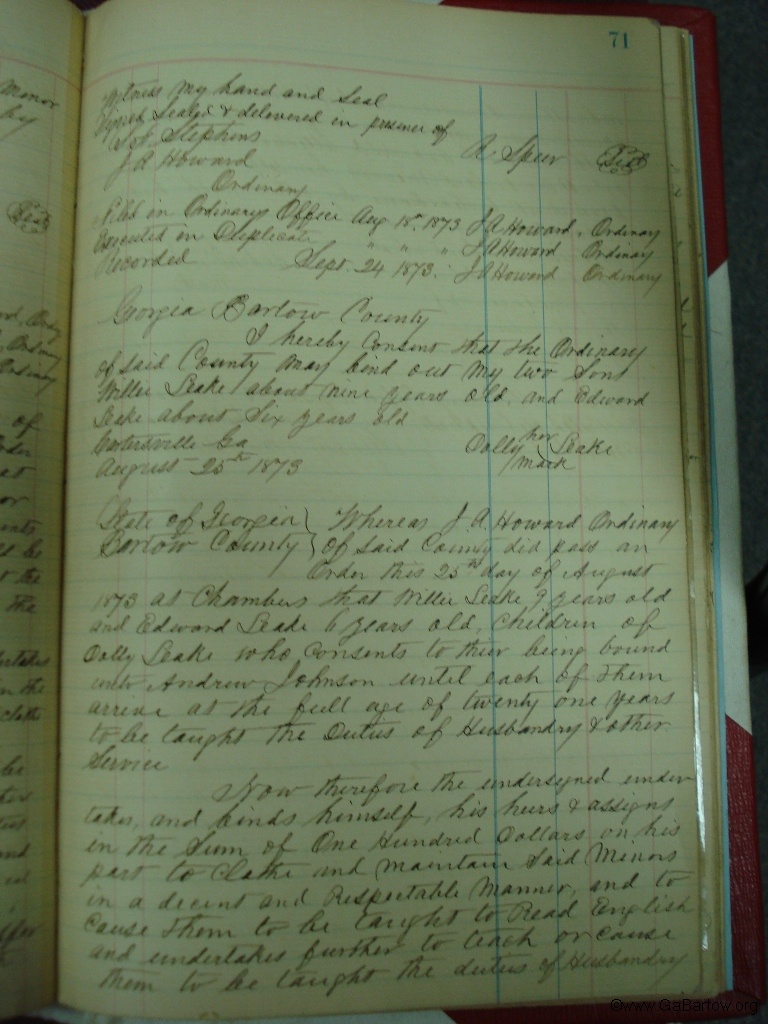 71
Witness my hand and Seal
Signed Sealed & delivered in presence of
Stephens
J A Howard
Ordinary
A. Speer
Seal
Filed in Ordinarys Office Aug 18th 1873 J A Howard, Ordinary
Executed in Duplicate " " " J A Howard Ordinary
Recorded Sept. 24 1873. J A Howard Ordinary
Georgia Bartow County
I hereby Consent that the Ordinary
of said County may bind out my two Sons
Willie Leake about nine years old and Edward
Leake about Six years old
Cartersville Ga
August 25th 1873
Dolly her Leake
mark
State of Georgia } Whereas J. A. Howard Ordinary
Bartow County } of said County did pass an
Order this 25th day of August
1873 at Chambers that Willie Leake 9 years old
and Edward Leake 6 years old, Children of
Dolly Leake who consents to their being bound
unto Andrew Johnson until each of them
arrive at the full age of twenty one years
to be taught the Duties of Husbandry & other
Service
Now therefore the undersigned under
takes, and binds himself, his heirs & assigns
in the Sum of One Hundred Dollars on his
part to Clothe and maintain said Minors
in a decent and Respectable Manner, and to
cause them to be taught to Read English
and undertakes further to teach or cause
them to be taught the duties of Husbandry
©www.GaBartow.org